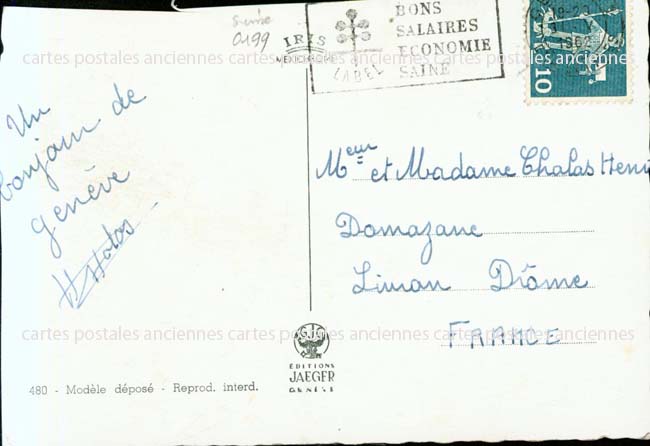 Suisse
0199
IRIS
MEXICHROME
LABEL
BONS
SALAIRES
ECONOMIE
SAINE
18-20
1962
10
cartes postales anciennes cartes postales anciennes cartes postales anciennes
Un
bonjour de
genève
Meur et Madame Chalas Henri
Domazane
Livron Drôme
FRANCE
cartes postales anciennes cartes postales anciennes cartes postales anciennes
GJG
EDITIONS
JAEGER
GENÈVE
480 - Modèle déposé - Reprod. interd.